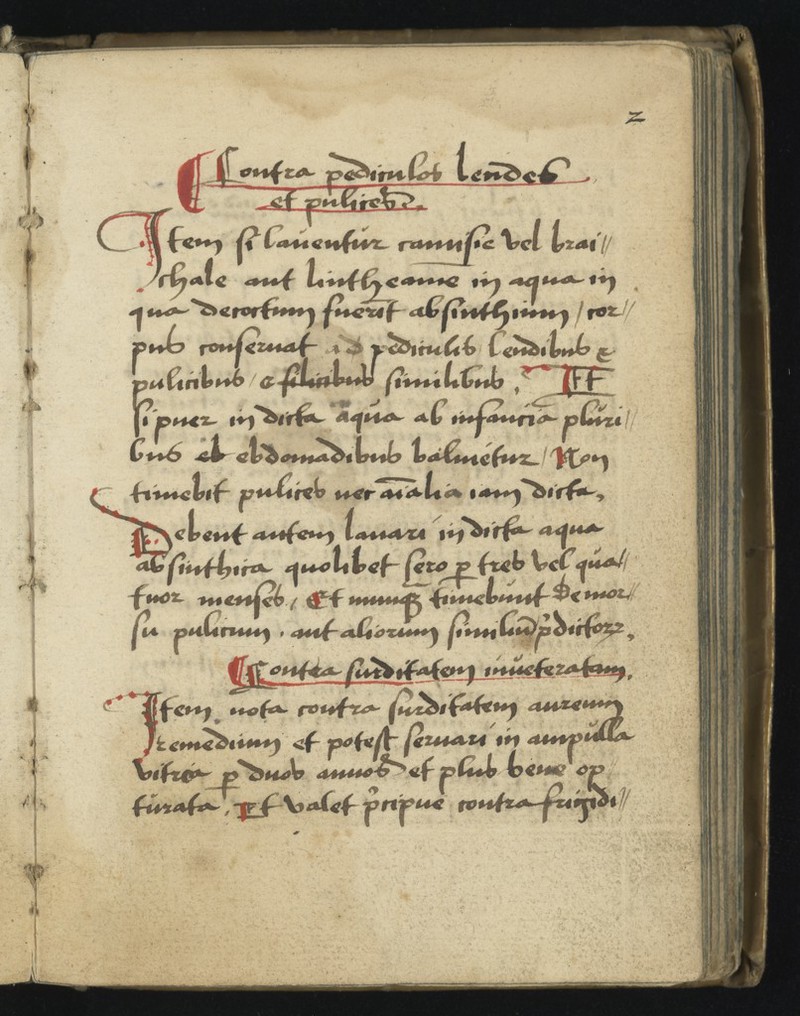 2
Contra pediculos lendes
et pulices.
Item si laventur camisie vel brai//
chale aut lintheamē in aqua in
qua decoctum fuerit absinthium / cor//
pus conservat ad pediculis lendibus &
pulicibus / & silicibus similibus . Et
si puer in dicta aqua ab infancia pluri//
bus eb ebdomadibus balnietur / Non
timebit pulices nec aīalia iam dicta.
Debent autem lavari in dicta aqua
absinthica quolibet sero p tres vel qua//
tuor menses / Et nunqȝ timebunt de mor//
su pulicum . aut aliorum similiū p̄dictorꝝ.
Contra surditatem inveteratam.
Item nota contra surditatem aureum
remedium et potest servari in ampulla
vitrea p duos annos et plus bene op
turata . Et valet p̄cipue contra frigidi//